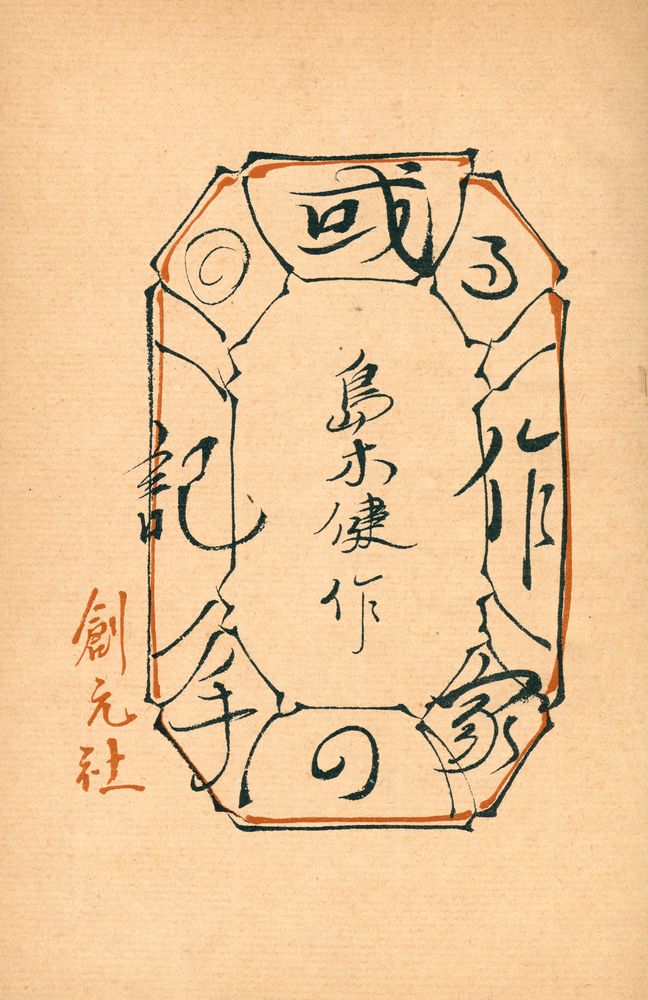 或る作家の手記
島木健作
創元社